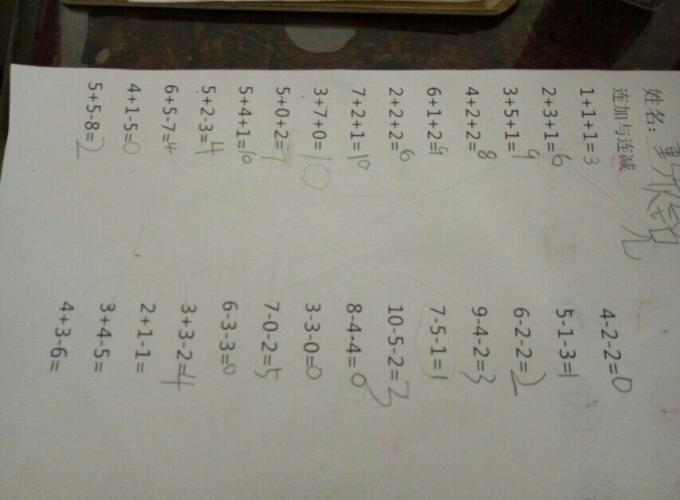 姓名:
连加与连减
1+1+1=3 4-2-2=0
2+3+1=6 5-1-3=1
3+5+1=9 6-2-2=2
4+2+2=8 9-4-2=3
6+1+2=9 7-5-1=1
2+2+2=6 10-5-2=3
7+2+1=10 8-4-4=0
3+7+0=10 3-3-0=0
5+0+2=7 7-0-2=5
5+4+1=10 6-3-3=0
5+2-3=4 3+3-2=4
6+5-7=4 2+1-1=
4+1-5=0 3+4-5=
5+5-8=2 4+3-6=